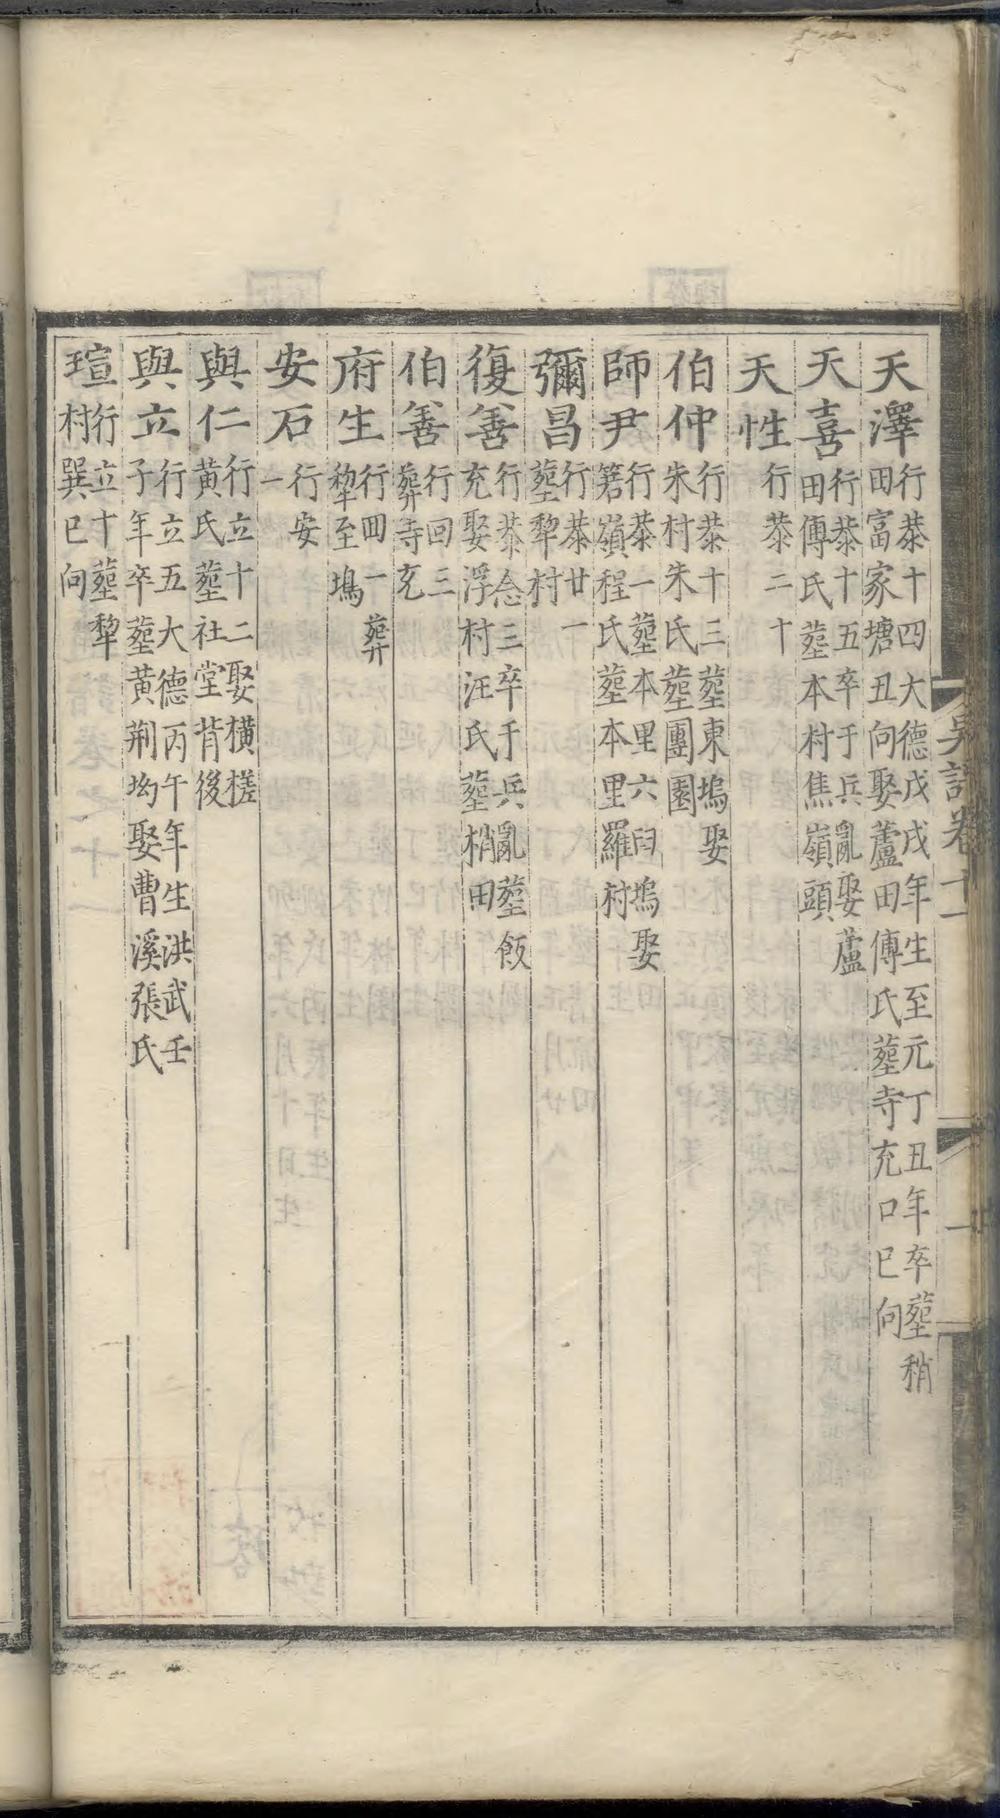 天澤行㳟十四大德戊戌年生至元丁丑年卒塟稍
田富家塘丑向娶蘆田傅氏塟寺充口巳向
天喜行㳟十五卒于兵亂娶蘆
田傅氏塟本村焦嶺頭
天性行㳟二十
伯仲行㳟十三塟東塢娶
朱村朱氏塟團園
師尹行㳟一塟本里六臼塢娶
箬嶺程氏塟本里羅村
彌昌行㳟廿一
塟犂村
復善行㳟念三卒于兵亂塟飯
充娶浮村汪氏塟梢田
伯善行回三
葬寺充
府生行回一葬
犂至塢
安石行安
一
與仁行立十二娶橫槎
黃氏塟社堂背後
與立行立五大德丙午年生洪武壬
子年卒塟黃荆坳娶曹溪張氏
瑄行立十塟犂
村巽巳向
吳譜卷十一
一